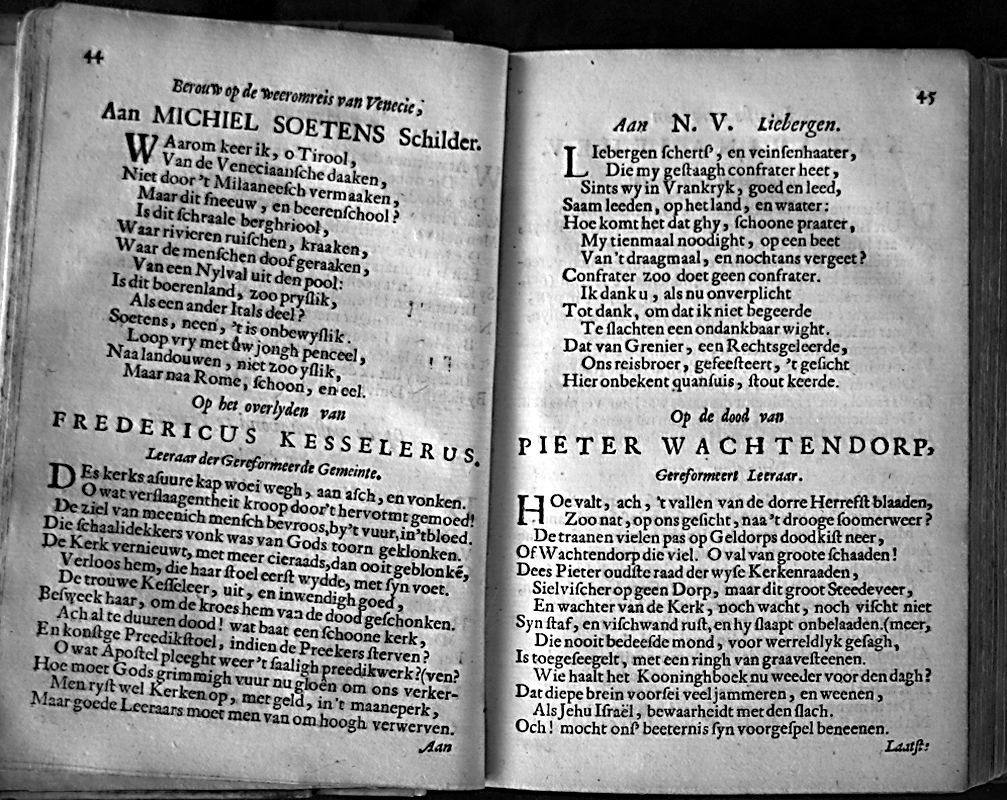 44
Berouw op de weeromreis van Venecie;
Aan MICHIEL SOETENS Schilder.
WAarom keer ik, o Tirool,
Van de Veneciaansche daaken,
Niet door 't Milaaneesch vermaaken,
Maar dit sneeuw, en beerenschool?
Is dit schraale berghriool,
Waar rivieren ruischen, kraaken,
Waar de menschen doof geraaken,
Van een Nylval uit den pool:
Is dit boerenland, zoo pryslik,
Als een ander Itals deel?
Soetens, neen, 't is onbewyslik.
Loop vry met uw jongh penceel,
Naa landouwen, niet zoo yslik,
Maar naa Rome, schoon, en eel.
Op het overlyden van
FREDERICUS KESSELERUS.
Leeraar der Gereformeerde Gemeinte.
DEs kerks asuure kap woei wegh, aan asch, en vonken.
O wat verslaagentheit kroop door't hervormt gemoed!
De ziel van meenich mensch bevroos, by't vuur, in'tbloed.
Die schaalidekkers vonk was van Gods toorn geklonken.
De Kerk vernieuwt, met meer cieraads, dan ooit geblonkē,
Verloos hem, die haar stoel eerst wydde, met syn voet.
De trouwe Kesseleer, uit, en inwendigh goed,
Besweek haar, om de kroes hem van de dood geschonken.
Ach al te duuren dood! wat baat een schoone kerk,
En konstge Preedikstoel, indien de Preekers sterven?
O wat Apostel pleeght weer't saaligh preedikwerk?(ven?
Hoe moet Gods grimmigh vuur nu gloên om ons verker-
Men ryst wel Kerken op, met geld, in't maaneperk,
Maar goede Leeraars moet men van om hoogh verwerven.
Aan
45
Aan N. V. Liebergen.
LIebergen scherts, en veinsenhaater,
Die my gestaagh confrater heet,
Sints wy in Vrankryk, goed en leed,
Saam leeden, op het land, en waater:
Hoe komt het dat ghy, schoone praater,
My tienmaal noodight, op een beet
Van 't draagmaal, en nochtans vergeet?
Confrater zoo doet geen confrater.
Ik dank u, als nu onverplicht
Tot dank, om dat ik niet begeerde
Te slachten een ondankbaar wight.
Dat van Grenier, een Rechtsgeleerde,
Ons reisbroer, gefeesteert, 't gesicht
Hier onbekent quansuis, stout keerde.
Op de dood van
PIETER WACHTENDORP,
Gereformeert Leeraar.
HOe valt, ach, 't vallen van de dorre Herrefst blaaden,
Zoo nat, op ons gesicht, naa 't drooge soomerweer?
De traanen vielen pas op Geldorps doodkist neer,
Of Wachtendorp die viel. O val van groote schaaden!
Dees Pieter oudste raad der wyse Kerkenraaden,
Sielvischer op geen Dorp, maar dit groot Steedeveer,
En wachter van de Kerk, noch wacht, noch vischt niet
Syn staf, en vischwand rust, en hy slaapt onbelaaden.(meer,
Die nooit bedeesde mond, voor werreldlyk gesagh,
Is toegeseegelt, met een ringh van graavesteenen.
Wie haalt het Kooninghboek nu weeder voor den dagh?
Dat diepe brein voorsei veel jammeren, en weenen,
Als Jehu Israël, bewaarheidt met den slach.
Och! mocht ons beeternis syn voorgespel beneenen.
Laatst: